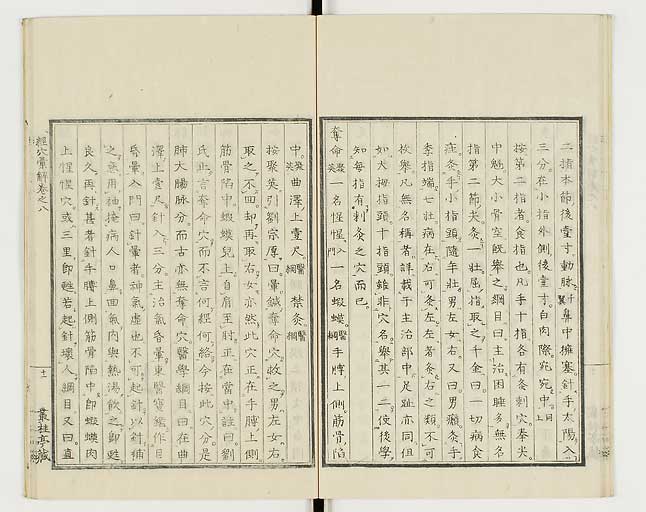 二指本節後壹寸動脈翼集中擁塞針手太陽入
三分在小指外側後壹寸白肉際宛宛中上同
按第二指者食指也凡手十指各有灸刺穴拳尖
中魁大小骨空既舉之綱目曰主治困睡多無名
指第二節尖灸一壯屈指取之千金曰一切病食
疰灸手小指頭隨年壯男左女右又曰男癲灸手
季指端七壯病在右可灸左左者灸右之類不可
枚舉凡無名稱者詳載于主治部中足趾亦同但
如大拇指頭十指頭雖非穴名舉其一二使後學
知每指有刺灸之穴而已
奪命聚英一名惺惺入門一名蝦蟆醫綱手膊上側筋骨陷
中聚英曲澤上壹尺醫綱禁灸醫綱
按聚英引劉宗厚曰暈鍼奪命穴收之男左女右
取之不回却再取右女亦然此穴正在手膊上側
筋骨陷中蝦蟆兒上自肩至肘正在當中註曰劉
氏止言奪命穴而不言何經何絡今按此穴分是
肺大腸脉分而古亦無奪命穴醫學綱目曰在曲
澤上壹尺針入三分主治氣昏暈東醫寶鑑作目
昏暈入門曰針暈者神氣虛也不可起針以針補
之急用袖掩病人口鼻回氣內與熱湯飲之即甦
良久再針甚者針手膊上側筋骨陷中即蝦蟆肉
上惺惺穴或三里即甦若起針壞人綱目又曰直
經穴彙解卷之八
十一
叢桂亭藏